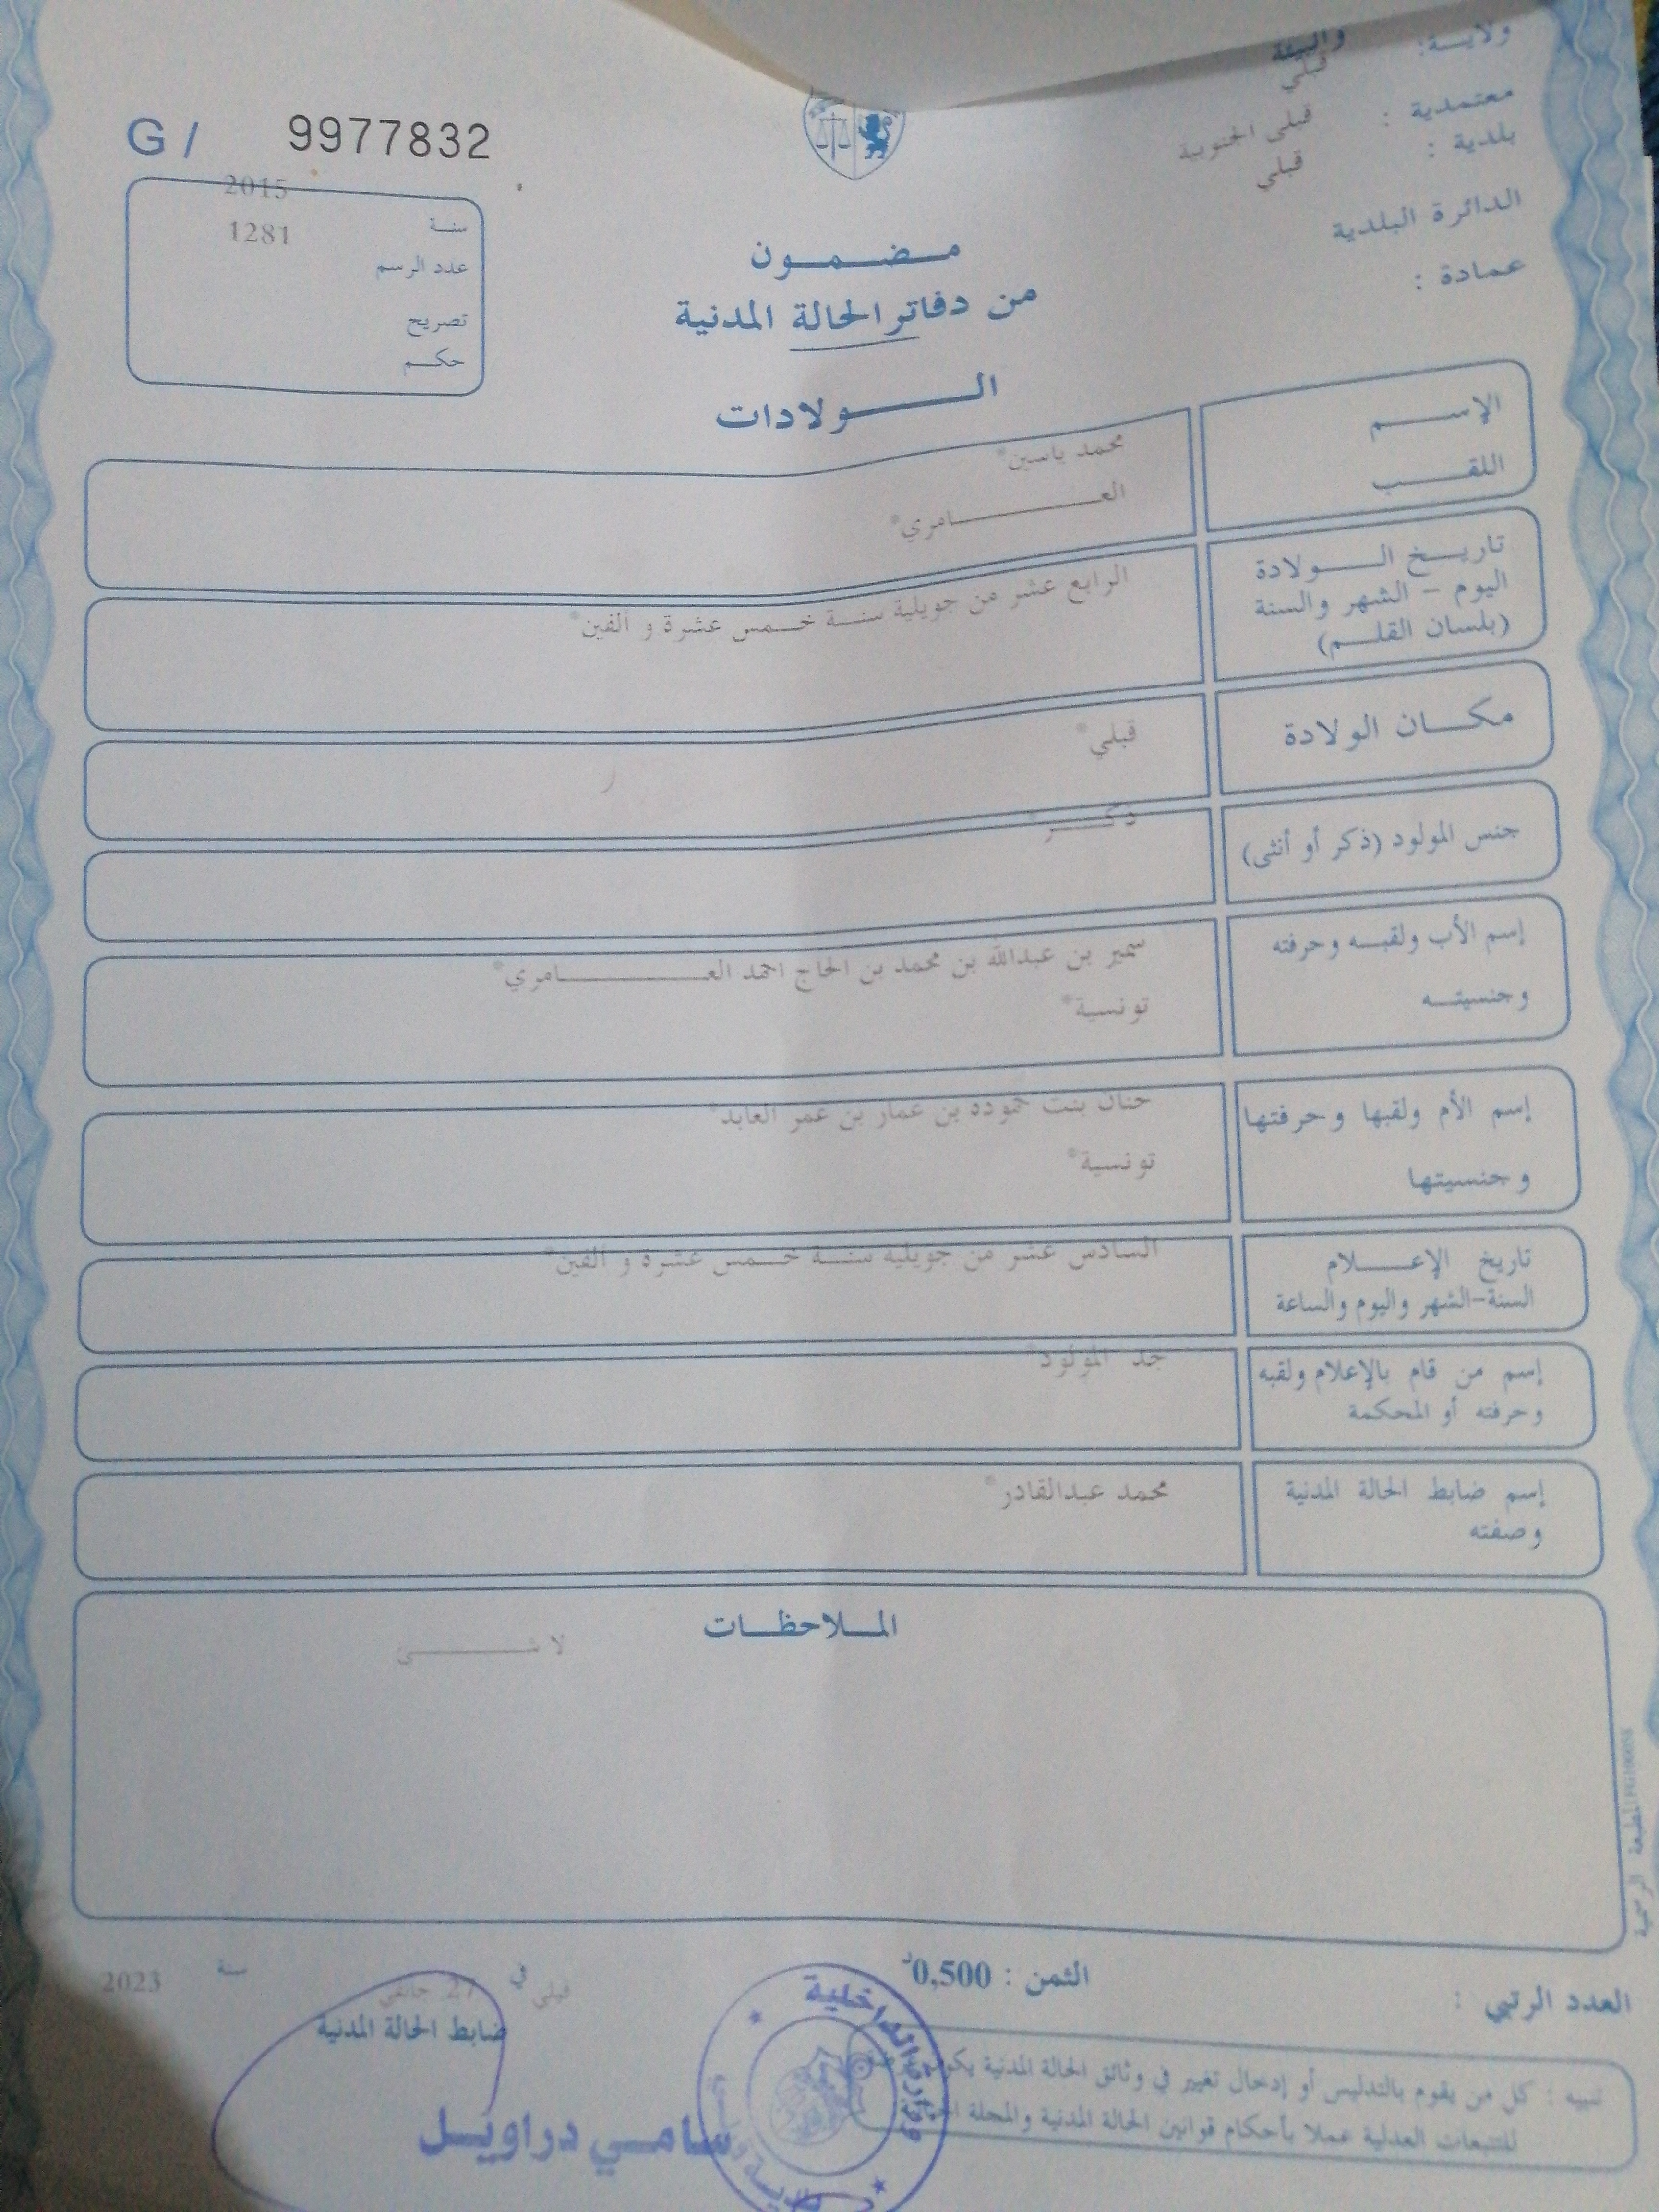 والبيئة
ولايـــة:
قبلي
معتمدية :
قبلي الجنوبية
بلدية :
قبلي
الدائرة البلدية
عمادة :
G/ 9977832
2015
سنـة
1281
عدد الرسم
تصريح
حكـــم
مـــضـــمـــون
من دفاتر الحالة المدنية
الـــــولادات
الإســـــم
محمد ياسين*
اللقـــــب
العــــــــامري*
تاريـــخ الــــولادة
اليوم – الشهر والسنة
(بلسان القلـــم)
الرابع عشر من جويلية سنـــة خـــمس عشرة و الفين*
مكـــان الولادة
قبلي*
جنس المولود (ذكر أو أنثى)
ذكـــــر*
إسم الأب ولقبـــه وحرفته
سمير بن عبدالله بن محمد بن الحاج احمد العــــــــامري*
وجنسيتـــه
تونسية*
إسم الأم ولقبها وحرفتها
حنان بنت حموده بن عمار بن عمر العابد*
وجنسيتها
تونسية*
تاريخ الإعـــــلام
السنة-الشهر واليوم والساعة
السادس عشر من جويلية سنـــة خـــمس عشرة و الفين*
إسم من قام بالإعلام ولقبه
وحرفته أو المحكمة
جد المولود*
إسم ضابط الحالة المدنية
وصفته
محمد عبدالقادر*
المـــلاحظـــات
لا شـــــــى
المطبعة الرسمية
العدد الرتبي :
الثمن : 0,500د
قبلي في 27 جانفي سنة 2023
ضابط الحالة المدنية
سامي دراويل
تنبيه : كل من يقوم بالتدليس أو إدخال تغيير في وثائق الحالة المدنية يكون
للتتبعات العدلية عملا بأحكام قوانين الحالة المدنية والمجلة
وزارة الداخلية